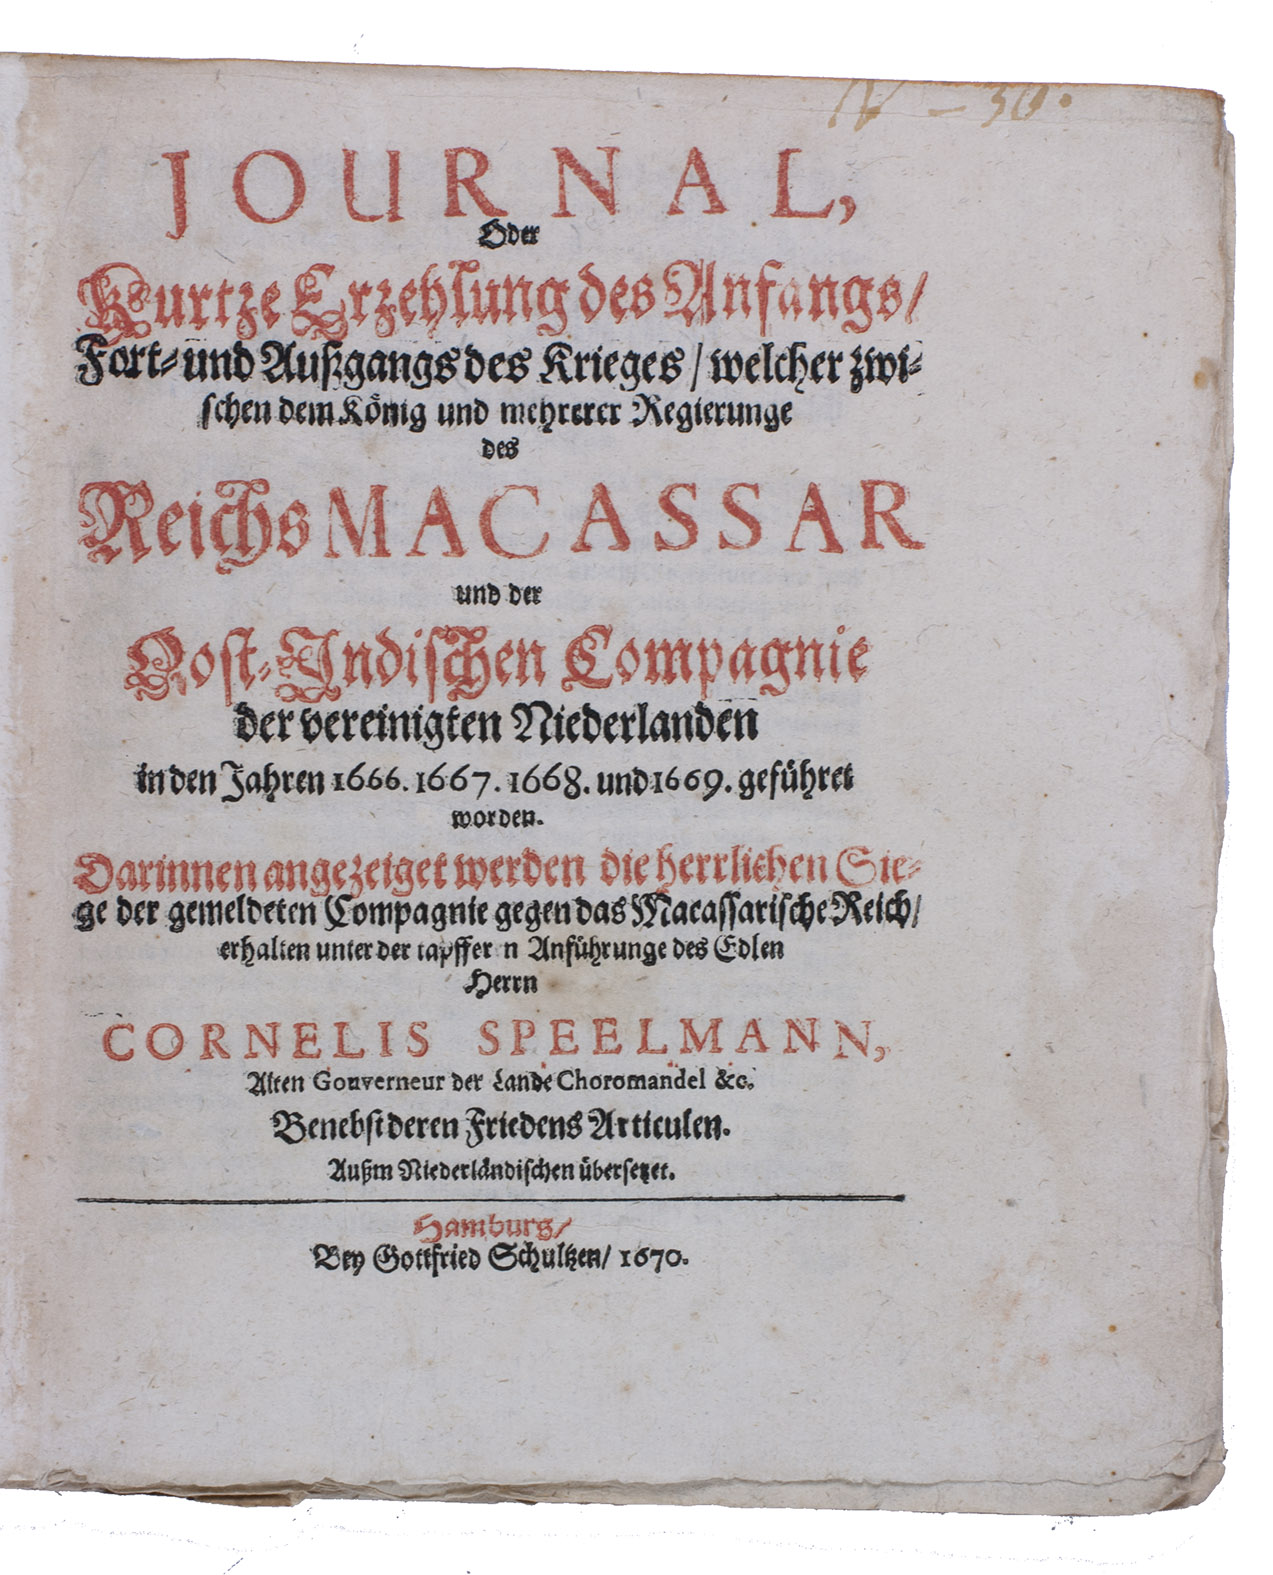 N – 50.
JOURNAL,
Oder
Kurtze Erzehlung des Anfangs/
Fort- und Außgangs des Krieges/ welcher zwi-
schen dem König und mehrerer Regierunge
des
Reichs MACASSAR
und der
Oost-Indischen Compagnie
der vereinigten Niederlanden
in den Jahren 1666. 1667. 1668. und 1669. geführet
worden.
Darinnen angezeiget werden die herrlichen Sie-
ge der gemeldeten Compagnie gegen das Macassarische Reich/
erhalten unter der tapffern Anführunge des Edlen
Herrn
CORNELIS SPEELMANN,
Alten Gouverneur der Lande Choromandel &c.
Benebst deren Friedens Articulen.
Außm Niederländischen übersetzet.
Hamburg/
Bey Gottfried Schultzen/ 1670.